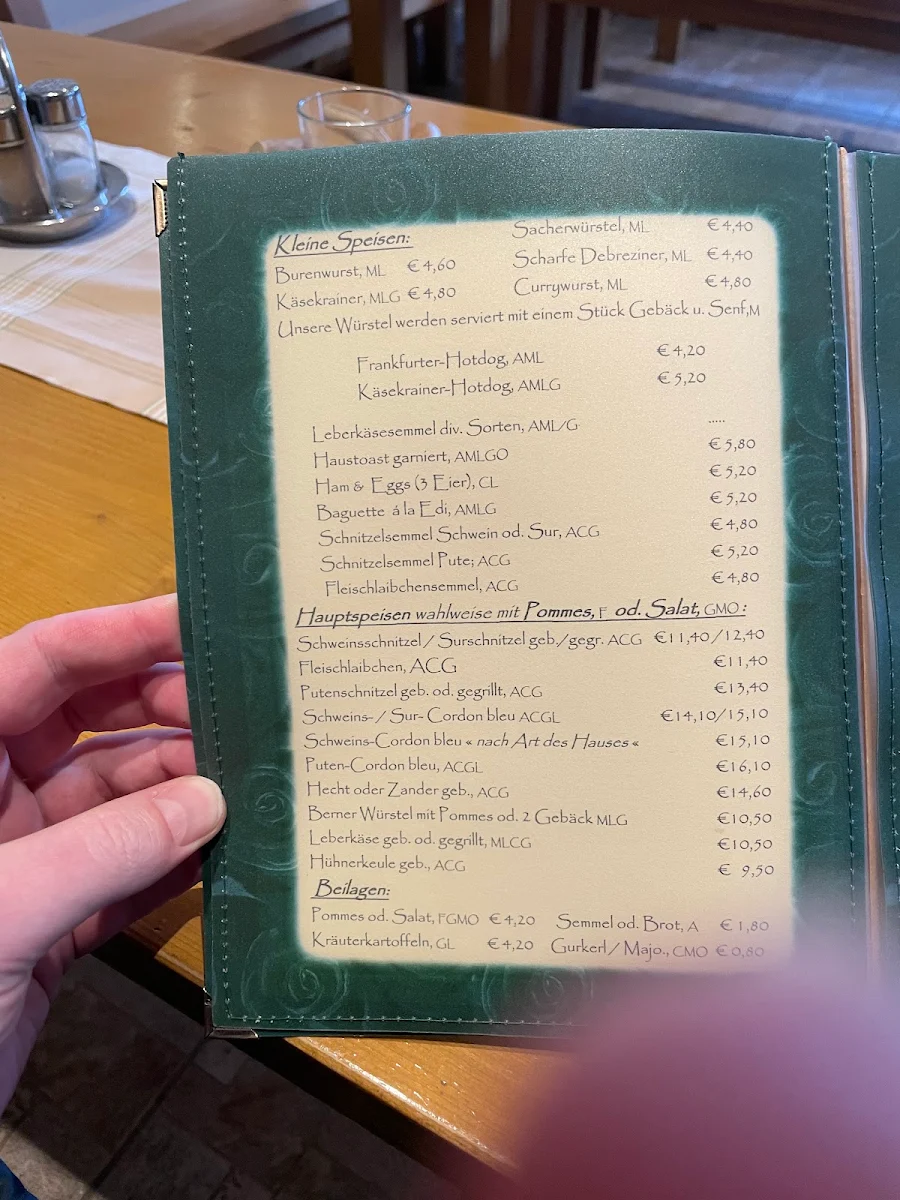 Kleine Speisen:
Burenwurst, ML € 4,60
Käsekrainer, MLG € 4,80
Sacherwürstel, ML € 4,40
Scharfe Debreziner, ML € 4,40
Currywurst, ML € 4,80
Unsere Würstel werden serviert mit einem Stück Gebäck u. Senf,M
Frankfurter-Hotdog, AML € 4,20
Käsekrainer-Hotdog, AMLG € 5,20
Leberkäsesemmel div. Sorten, AML/G .....
Haustoast garniert, AMLGO € 5,80
Ham & Eggs (3 Eier), CL € 5,20
Baguette á la Edi, AMLG € 5,20
Schnitzelsemmel Schwein od. Sur, ACG € 4,80
Schnitzelsemmel Pute; ACG € 5,20
Fleischlaibchensemmel, ACG € 4,80
Hauptspeisen wahlweise mit Pommes, F od. Salat, GMO :
Schweinsschnitzel / Surschnitzel geb./gegr. ACG €11,40/12,40
Fleischlaibchen, ACG €11,40
Putenschnitzel geb. od. gegrillt, ACG €13,40
Schweins- / Sur- Cordon bleu ACGL €14,10/15,10
Schweins-Cordon bleu « nach Art des Hauses « €15,10
Puten-Cordon bleu, ACGL €16,10
Hecht oder Zander geb., ACG €14,60
Berner Würstel mit Pommes od. 2 Gebäck MLG €10,50
Leberkäse geb. od. gegrillt, MLCG €10,50
Hühnerkeule geb., ACG € 9,50
Beilagen:
Pommes od. Salat, FGMO € 4,20 Semmel od. Brot, A € 1,80
Kräuterkartoffeln, GL € 4,20 Gurkerl/ Majo., CMO € 0,80